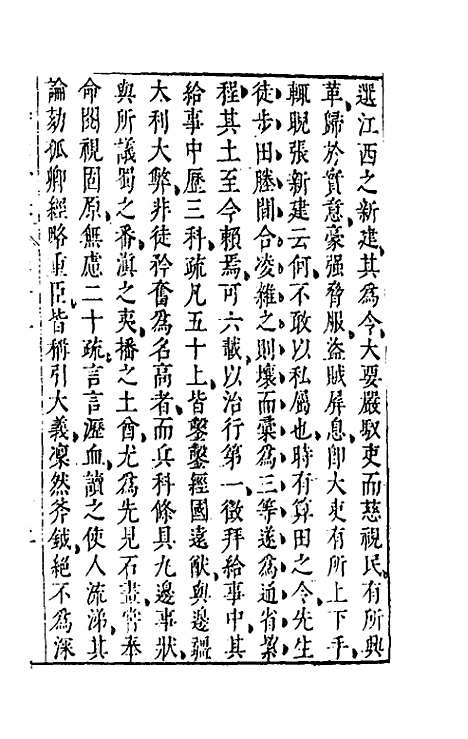 選江西之新建其為令大要嚴馭吏而慈視民有所興
革歸於實意豪强脅服盜賊屏息即大吏有所上下手
輒睨張新建云何不敢以私屬也時有算田之令先生
徒步田塍間合凌雜之則壤而彚為三等遂為通省絜
程其土至今賴焉可六載以治行第一徵拜給事中其
給事中歷三科疏凡五十上皆鑿鑿經國遠猷與邊疆
大利大弊非徒矜奮為名高者而兵科條具九邊事狀
與所議蜀之番滇之夷播之土酋尤為先見石畫嘗奉
命閱視固原無慮二十疏言言瀝血讀之使人流涕其
論劾孤卿經略重臣皆稱引大義凜然斧鉞絕不為深